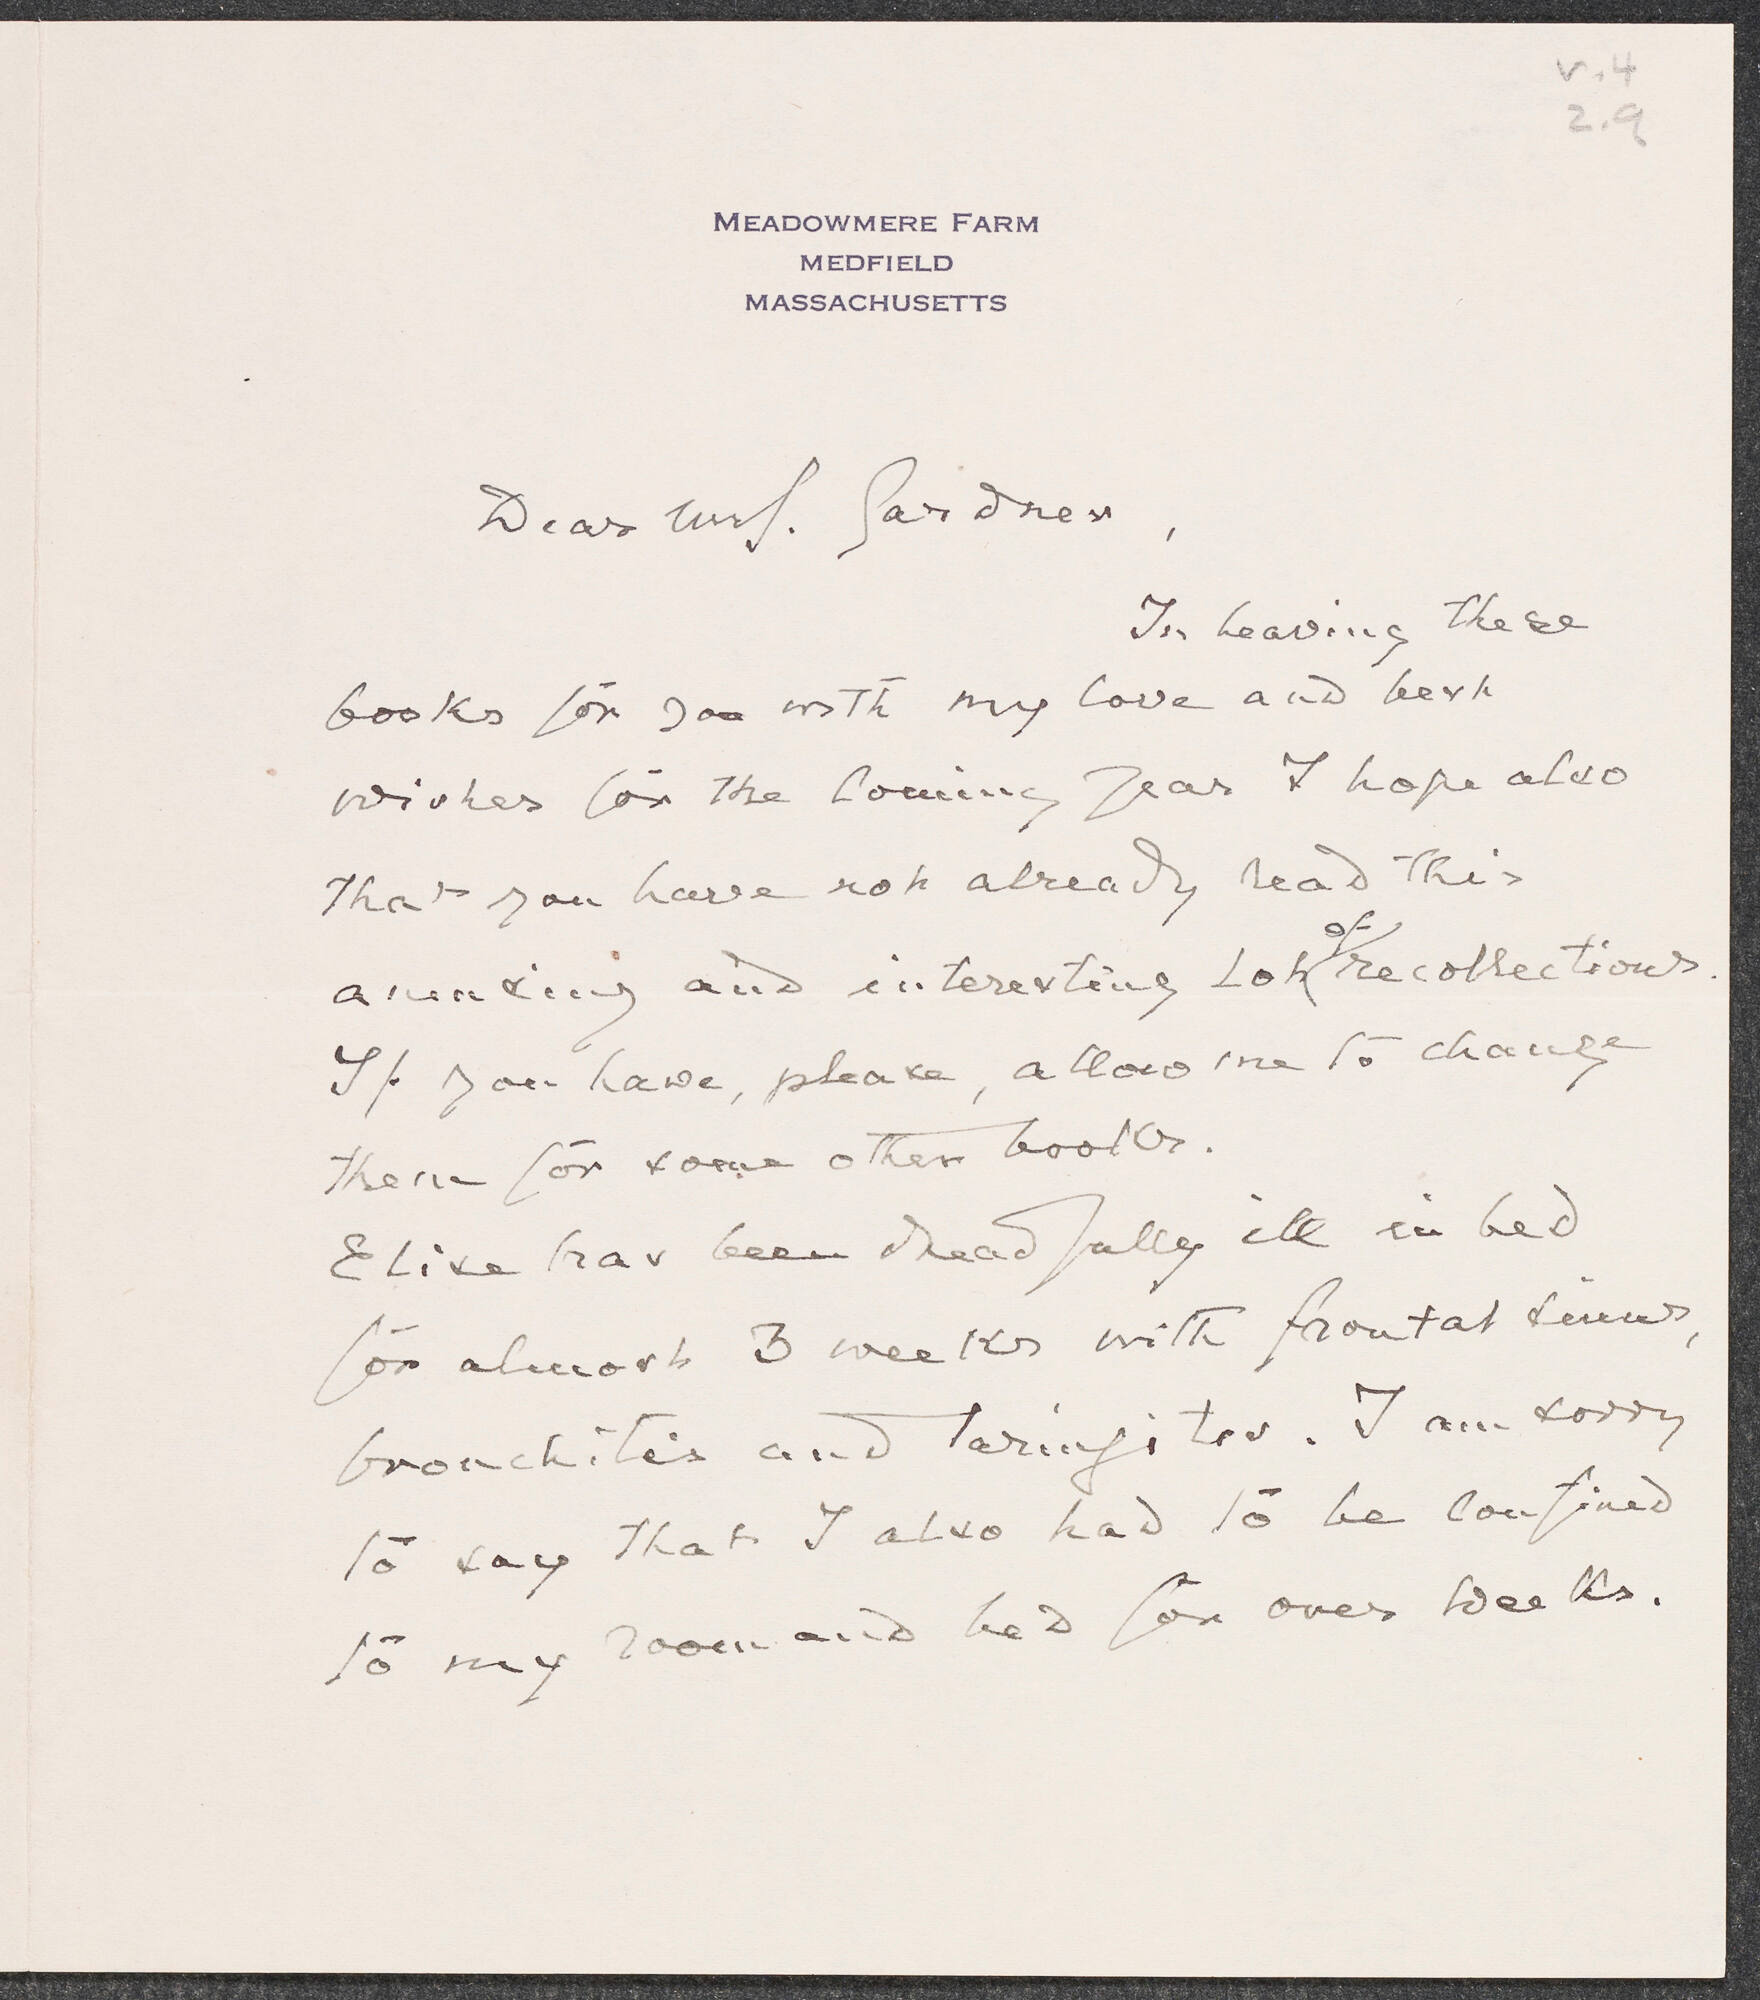 v.4
2.9
MEADOWMERE FARM
MEDFIELD
MASSACHUSETTS
Dear Mrs. Gardner,
In leaving these
books for you with my love and best
wishes for the coming year I hope also
that you have not already read this
amusing and interesting lot of recollections.
If you have, please, allow me to change
them for some other books.
Elise has been dreadfully ill in bed
for almost 3 weeks with frontal sinus,
bronchitis and laringites. I am sorry
to say that I also had to be confined
to my room and bed for over weeks.